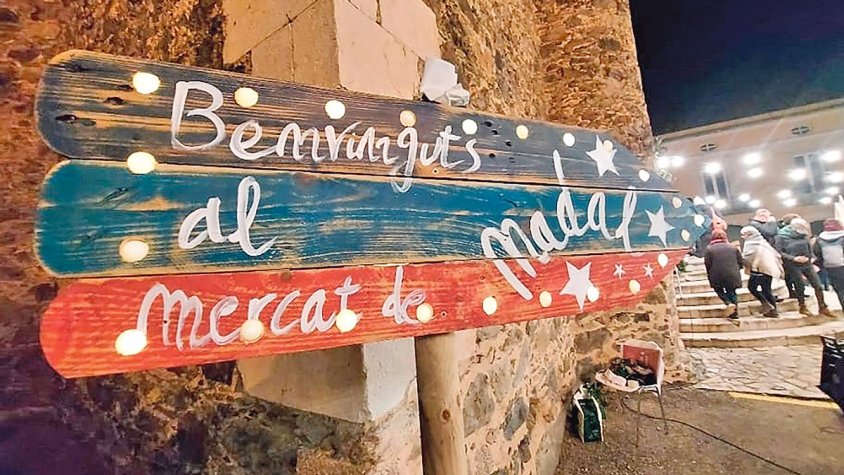 Benvinguts
al
mercat de Nadal